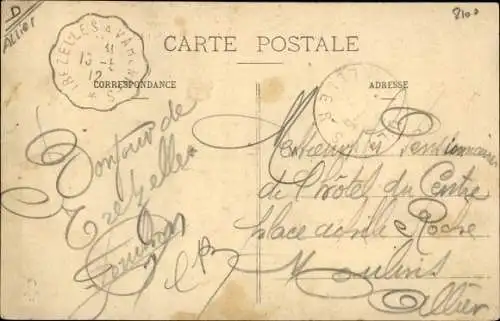 D
Allier
8100
TREZELLES A VARENNES
CARTE POSTALE
CORRESPONDANCE
ADRESSE
Bonjour de
Trezelles
Messieurs les Pensionnaires
de l'hôtel du Centre
place de la Roche
Moulins
Allier